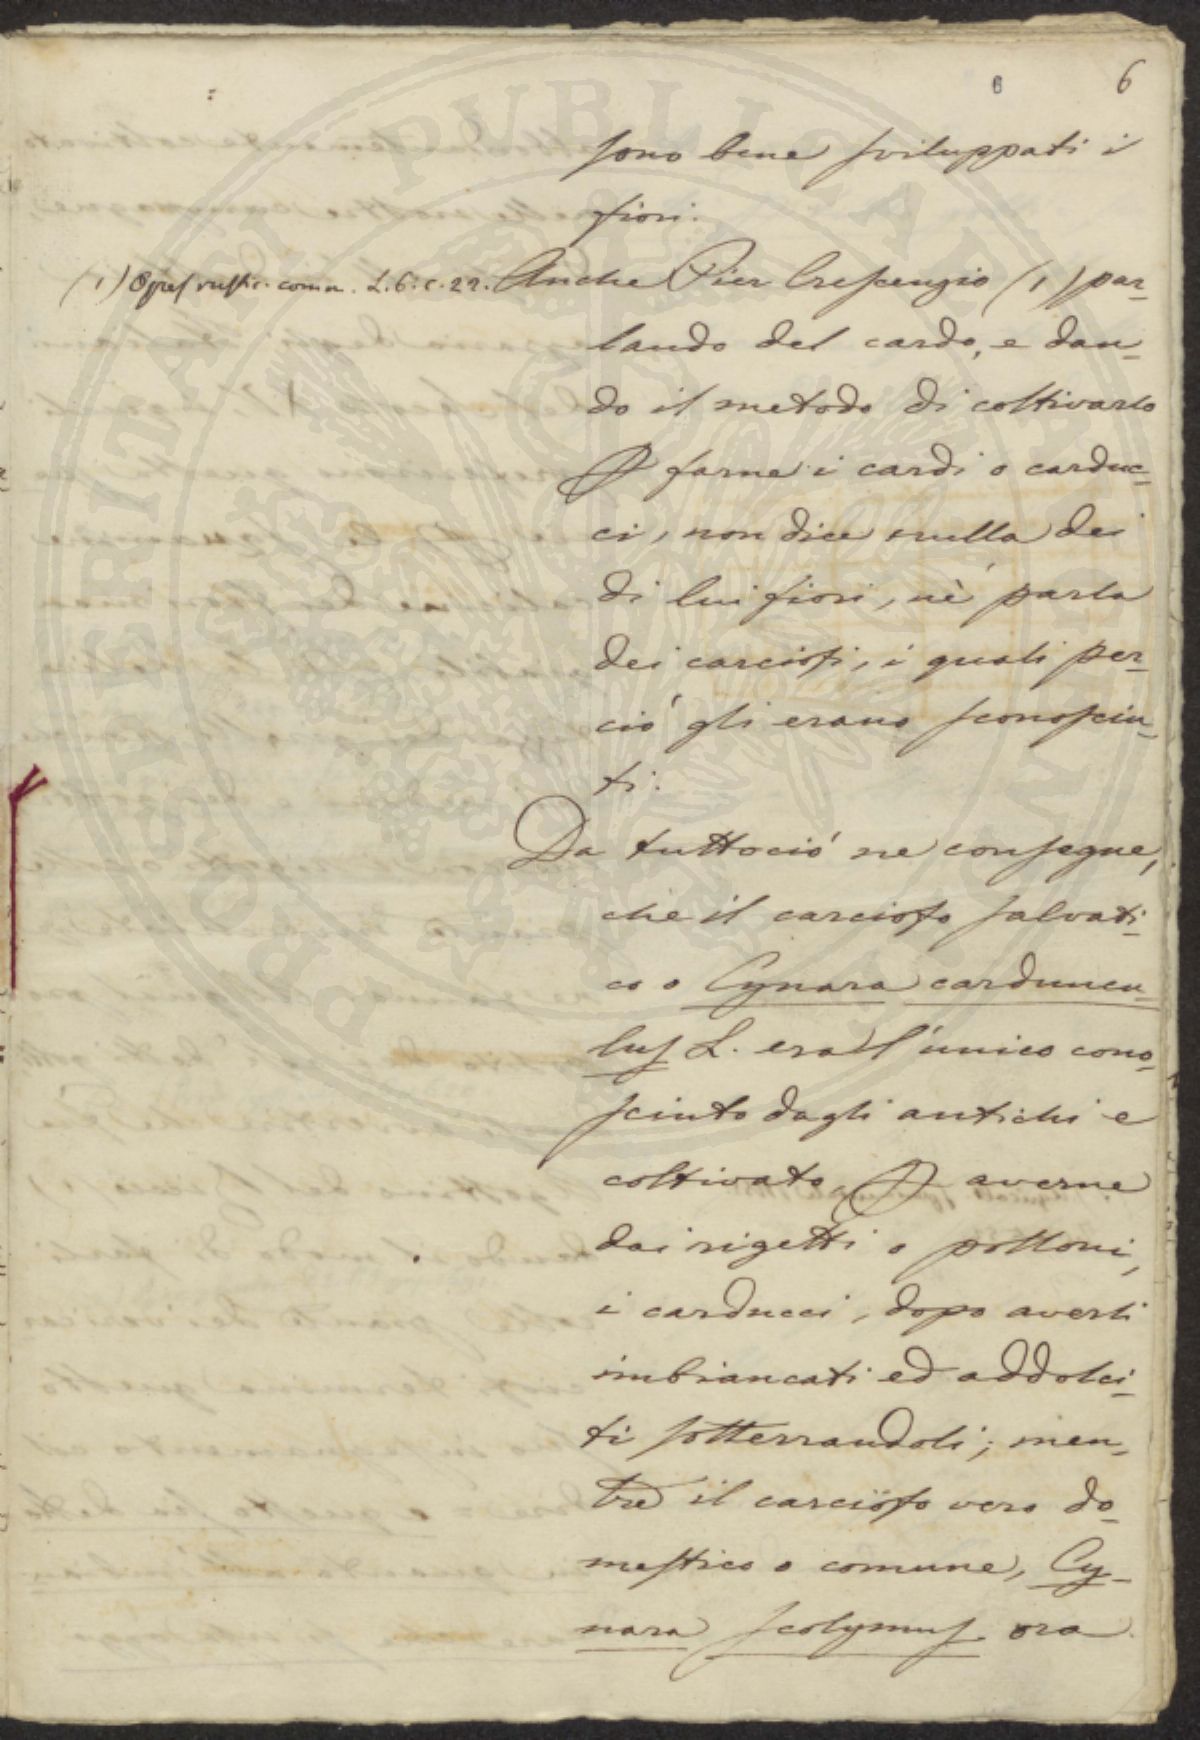 6 6
sono bene sviluppati i
fiori.
(1) Opus rustic. comm. L. 6. c. 22. Anche Pier Crescenzio (1) par-
lando del cardo, e dan-
do il metodo di coltivarlo
P farne i cardi o carduc-
ci, non dice nulla dei
di lui fiori, nè parla
dei carciofi, i quali per-
ciò gli erano sconosciu-
ti.
Da tuttociò ne consegue,
che il carciofo salvati-
co o Cynara carduncu-
lus L. era l'unico cono-
sciuto dagli antichi e
coltivato, P averne
dai rigetti o polloni,
i carducci, dopo averli
imbiancati ed addolci-
ti sotterrandoli; men-
tre il carciofo vero do-
mestico o comune, Cy-
nara scolymus ora
PROSPERITATI PUBLICAE AUGENDAE